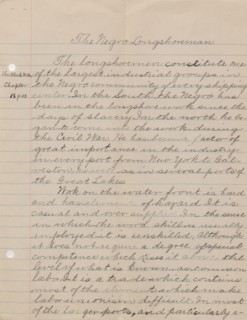 The Negro Longshoreman
The longshoremen constitute one
of the largest industrial groups in
the Negro community of every shipping
center. In the South the Negro has
been in the longshore work since the
days of slavery. In the north he be
gan to come into the work during
the Civil War. He has a factor of
great importance in the industry
in every port from New York to Gal
veston as in several ports of
the Great Lakes.
Work on the water front is hard
and of hazard. It is
casual and over supplied. In the sense
in which the word skilled is usually
employed it is unskilled. Although
it does not require a degree of special
competence which it above the
level of what is known as common
labor. It is a trade which contains
most of the to make
labor unionism difficult. In most
of the larger ports, and particularly in